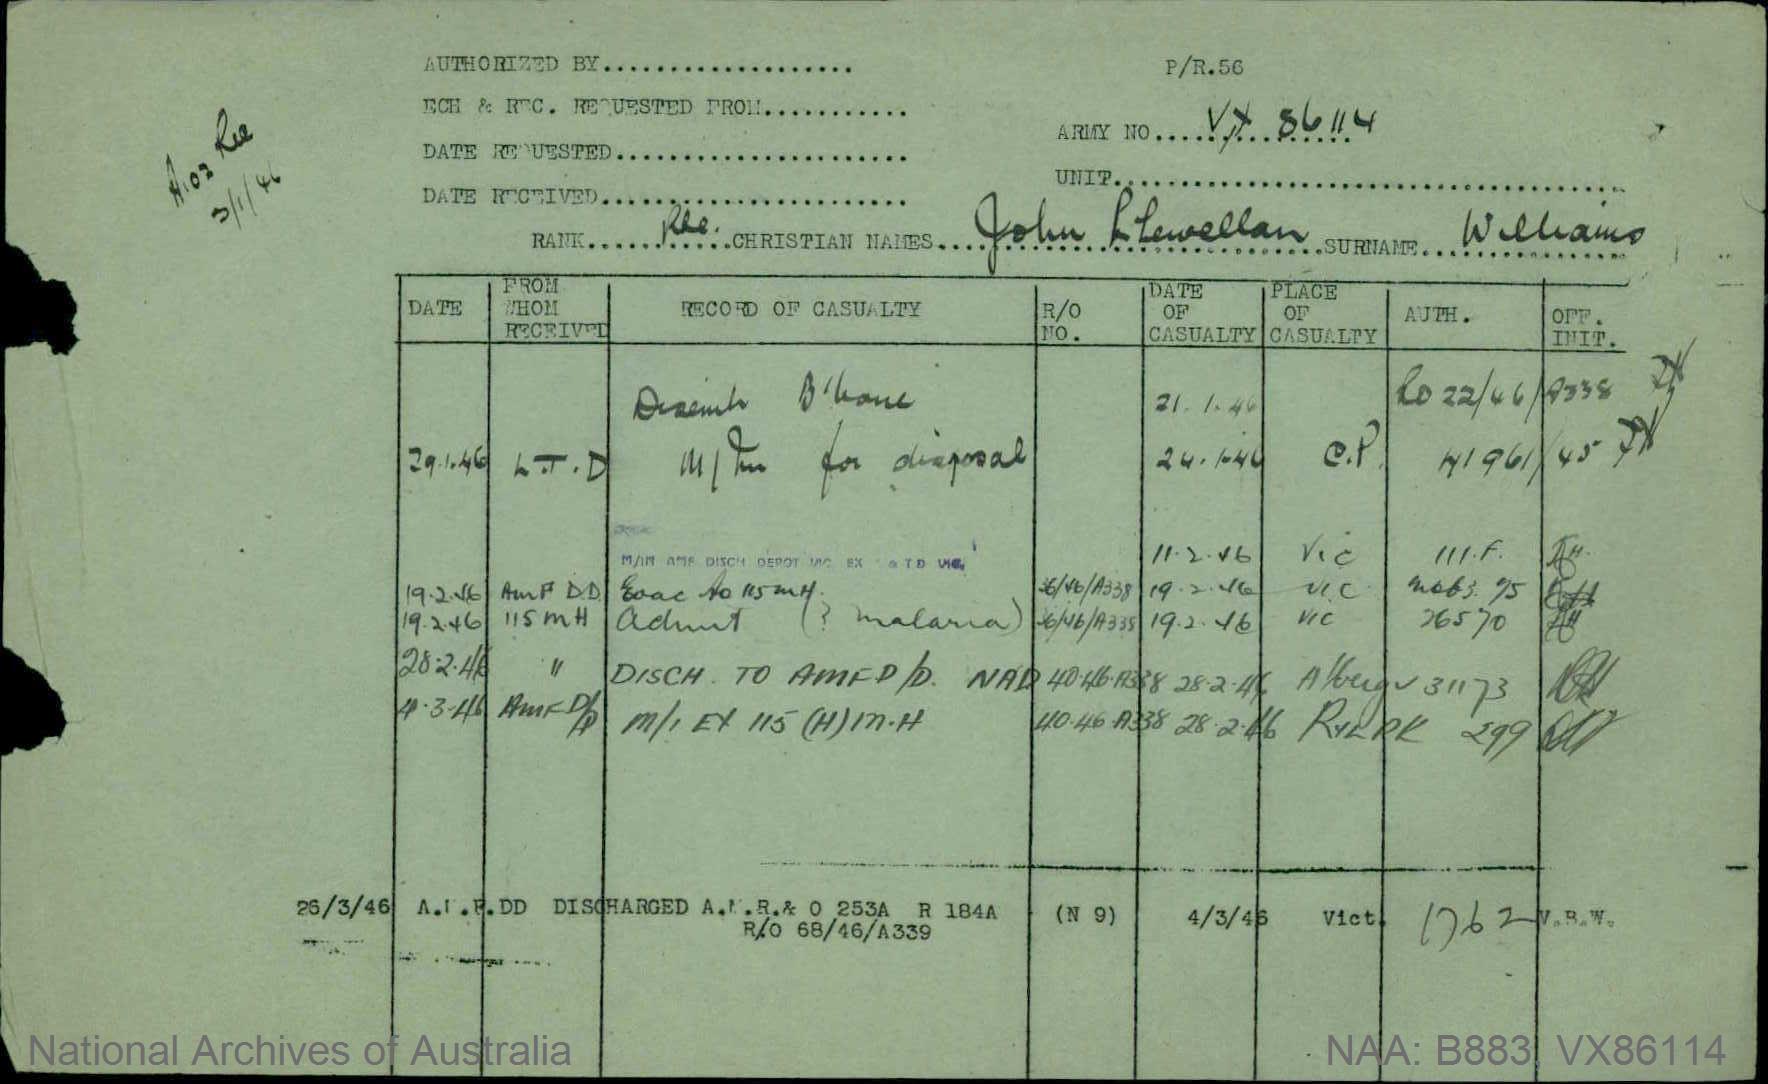 AUTHORIZED BY...................
P/R.56
ECH & REC. REQUESTED FROM...........
A102 Rec
3/1/46
ARMY NO.... VX 86114
DATE REQUESTED......................
UNIT.......................................
DATE RECEIVED.......................
RANK...... Pte. ....CHRISTIAN NAMES.... John Llewellan ....SURNAME... Williams
DATE | FROM WHOM RECEIVED | RECORD OF CASUALTY | R/O NO. | DATE OF CASUALTY | PLACE OF CASUALTY | AUTH. | OFF. INIT.
Disemb B'bane 21.1.46 RO 22/46/A338
29.1.46 L.T.D M/In for disposal 24.1.46 C.P. 41961/45
M/IN AMF DISCH DEPOT VIC EX LTD VIC. 11.2.46 Vic 111.F.
19.2.46 AMF D.D. Evac to 115 MH. 36/46/A338 19.2.46 VIC
19.2.46 115 MH Admit (? malaria) 36/46/A338 19.2.46 VIC 26570
28.2.46 " DISCH. TO AMF D/D. NAD 40.46.A338 28.2.46 31173
4.3.46 AMF D/D M/I EX 115 (H) M.H 40.46.A338 28.2.46 R PK 299
26/3/46 A.M.F.DD DISCHARGED A.M.R.& O 253A R 184A (N 9) 4/3/46 Vict. 1762 V.B.W.
R/O 68/46/A339
National Archives of Australia
NAA: B883, VX86114